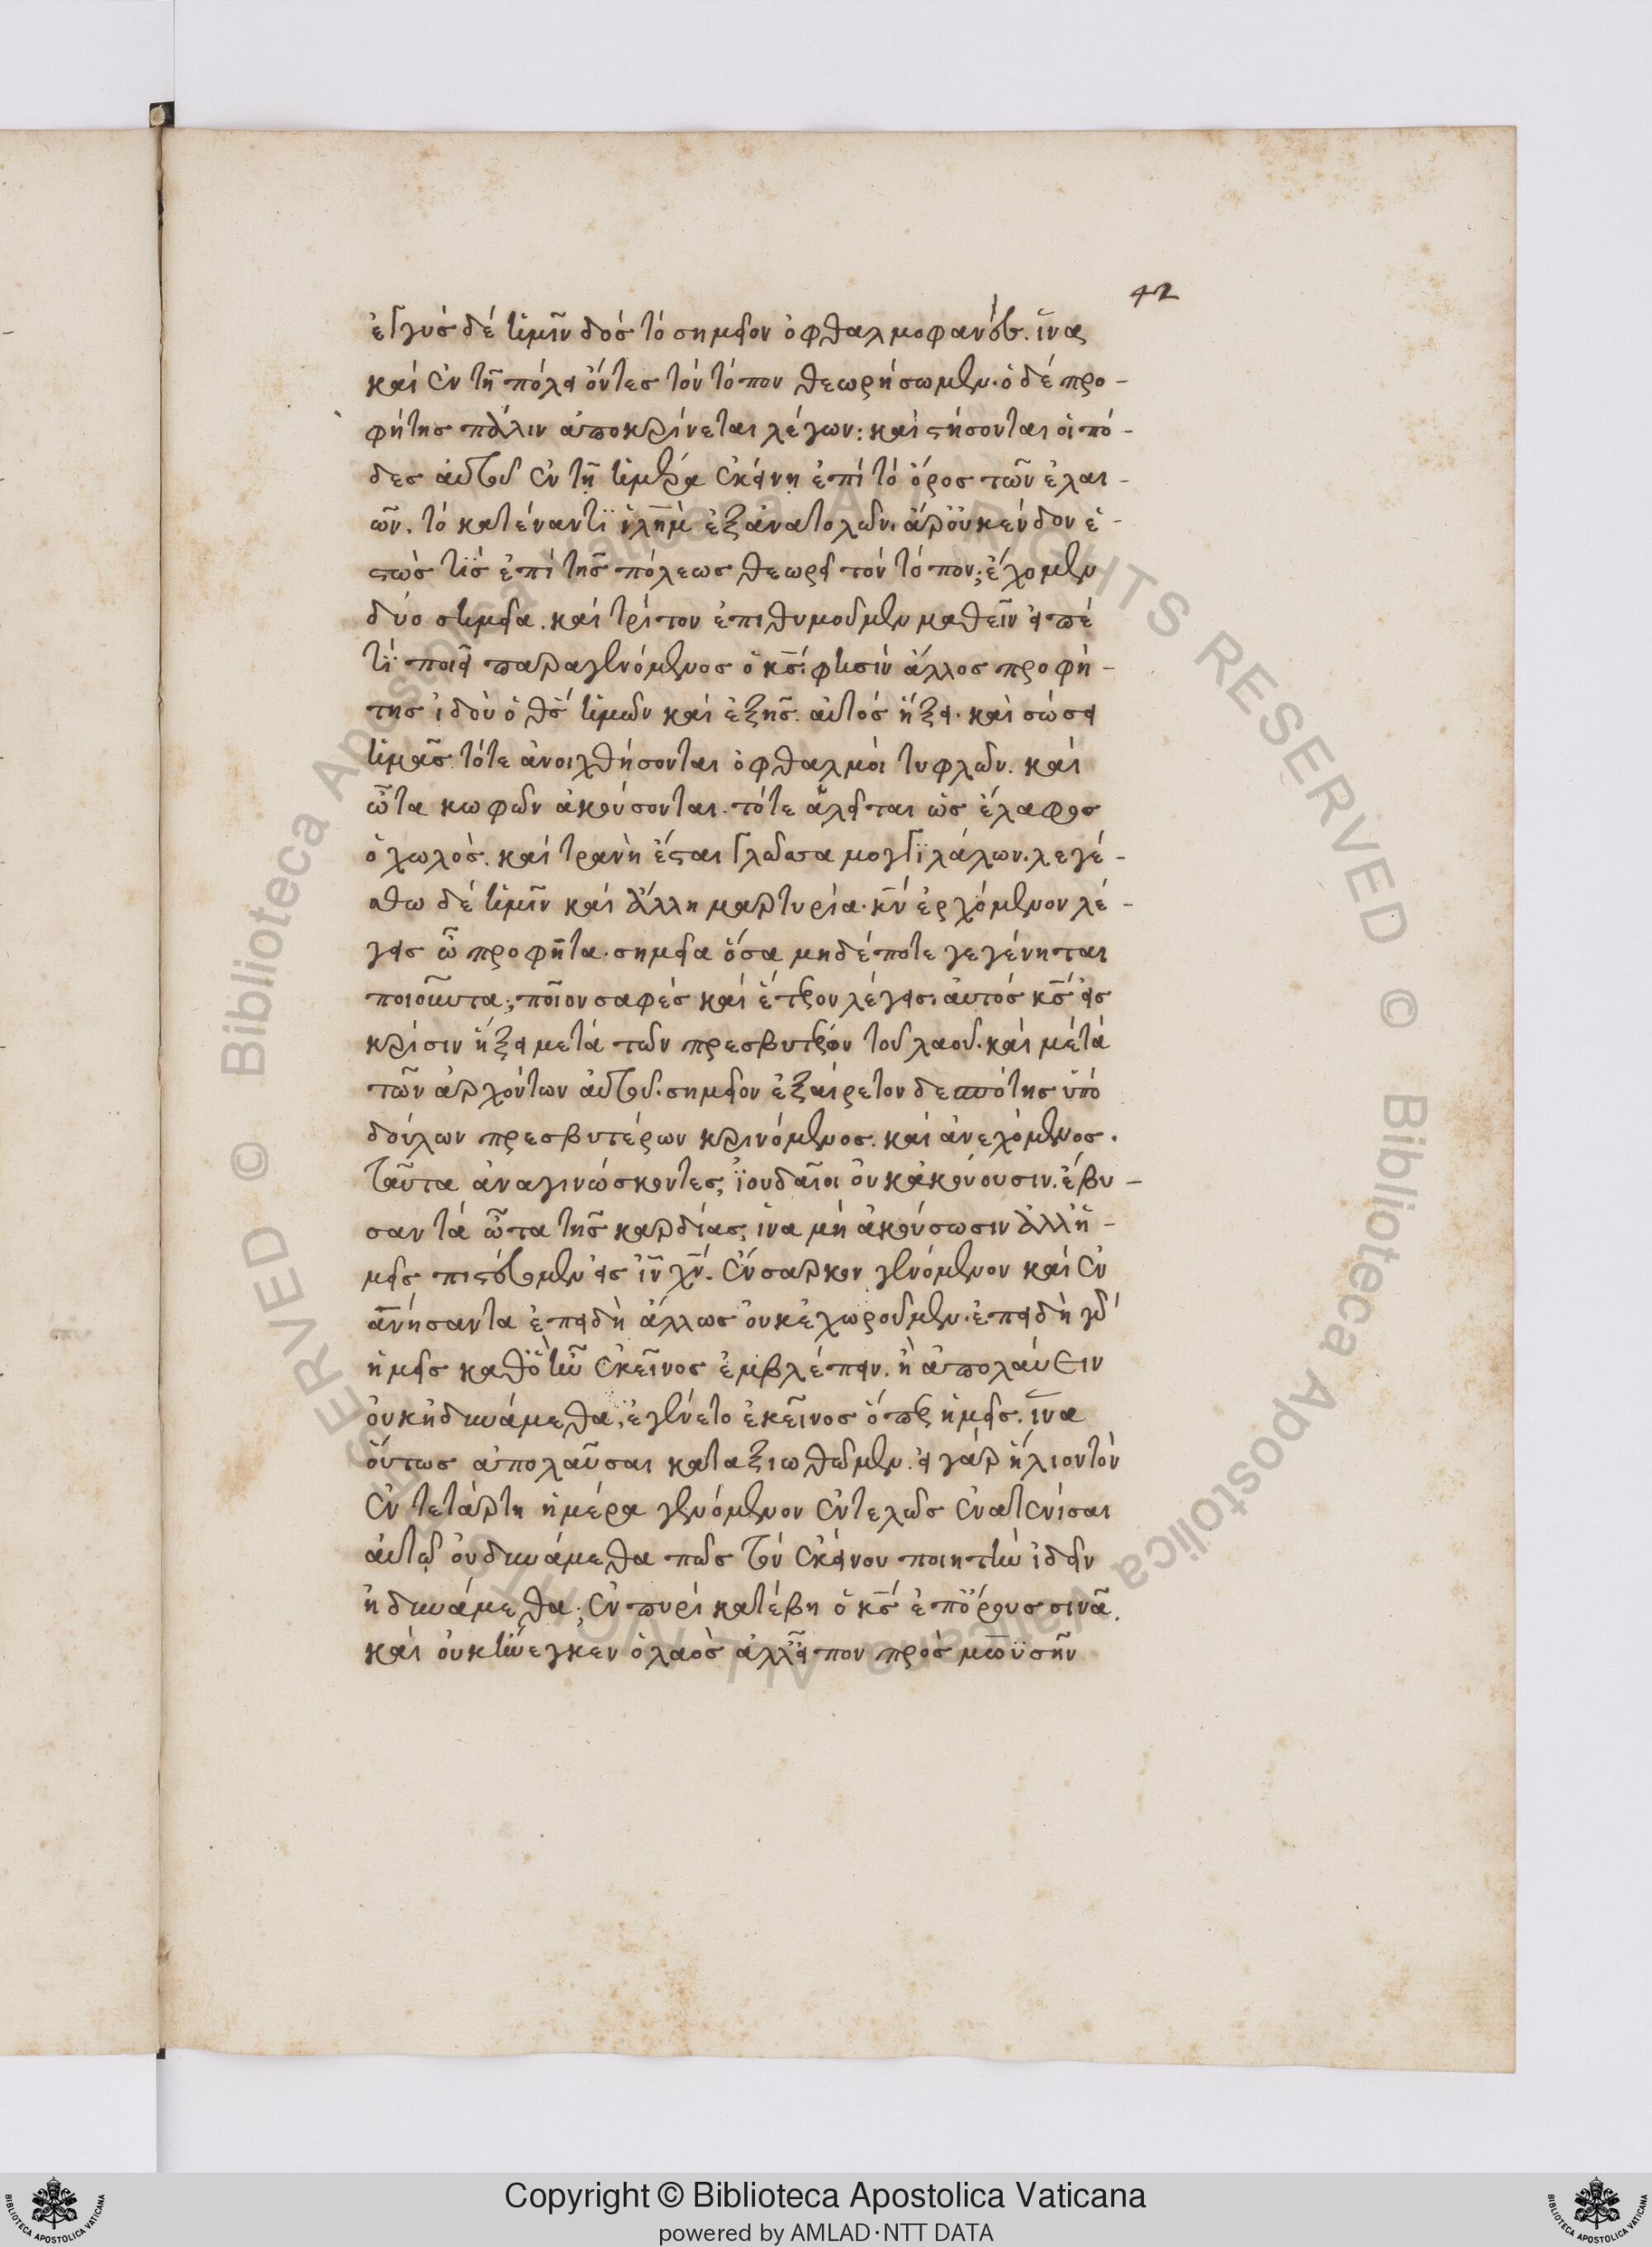 42
ἐγγύς δέ ἡμῖν δός τό σημεῖον ὀφθαλμοφανές. ἵνα
καί ἐν τῇ πόλει ὄντες τόν τόπον θεωρήσωμεν. ὁ δέ προ-
φήτης πάλιν ἀποκρίνεται λέγων: καί στήσονται οἱ πό-
δες αὐτοῦ ἐν τῇ ἡμέρα ἐκείνη ἐπί τό ὄρος τῶν ἐλαι-
ῶν. τό κατέναντϊ ἱλῆμ ἐξ ἀνατολῶν. ἆρ οὐκ ἔνδον ἑ-
στώς τϊς ἐπί τῆς πόλεως θεωρεῖ τόν τόπον; ἔχομεν
δύο σημεῖα. καί τρίτον ἐπιθυμοῦμεν μαθεῖν εἰπέ
τϊ ποιεῖ παραγενόμενος ὁ κς; φησίν ἄλλος προφή-
της ἰδού ὁ θς ἡμῶν καί ἑξῆς. αὐτός ἥξει. καί σώσει
ἡμᾶς τότε ἀνοιχθήσονται ὀφθαλμοί τυφλῶν. καί
ὦτα κωφῶν ἀκούσονται. τότε ἁλεῖται ὡς ἔλαφος
ὁ χωλός. καί τρανή ἔσται γλῶσσα μογγϊλάλων. λεγέ-
σθω δέ ἡμῖν καί ἄλλη μαρτυρία. κν ἐρχόμενον λέ-
γεις ὦ προφῆτα. σημεῖα ὅσα μηδέποτε γεγένηται
ποιοῦντα; ποῖον σαφές καί ἕτερον λέγεις. αὐτός κς εἰς
κρίσιν ἥξει μετά τῶν πρεσβυτέρων τοῦ λαοῦ. καί μετά
τῶν ἀρχόντων αὐτοῦ. σημεῖον ἐξαίρετον δεσπότης ὑπό
δούλων πρεσβυτέρων κρινόμενος. καί ἀνεχόμενος.
ταῦτα ἀναγινώσκοντες, ἰουδαῖοι οὐκ ἀκούουσιν. ἔβυ-
σαν τά ὦτα τῆς καρδίας, ἵνα μή ἀκούσωσιν ἀλλ ἡ-
μεῖς πιστεύομεν εἰς ἰν χν. ἔνσαρκον γενόμενον καί ἐν
ανήσαντα ἐπειδή ἄλλως οὐκ ἐχωροῦμεν. ἐπειδή γάρ
ἡμεῖς καθὅ ἦν ἐκεῖνος ἐμβλέπειν. ἤ ἀπολαύειν
οὐκ ἠδυνάμεθα, ἐγένετο ἐκεῖνος ὅπερ ἡμεῖς. ἵνα
οὕτως ἀπολαῦσαι καταξιωθῶμεν. εἰ γάρ ἥλιον τόν
ἐν τετάρτη ἡμέρα γενόμενον ἐντελῶς ἐνατενίσαι
αὐτῷ οὐ δυνάμεθα πῶς τόν ἐκείνου ποιητήν ἰδεῖν
ἠδυνάμεθα; ἐν πυρί κατέβη ὁ κς ἐπ ὄρους σινᾶ.
καί οὐκ ἤνεγκεν ὁ λαός ἀλλ εἶπον πρός μωϋσῆν